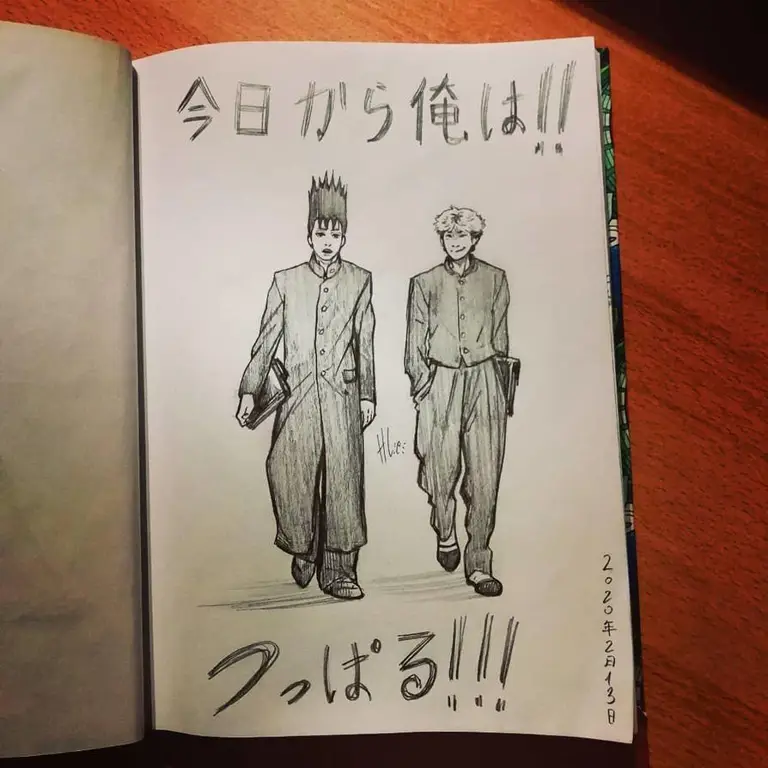 今日から俺は!!
つっぱる!!!
2020年2月13日